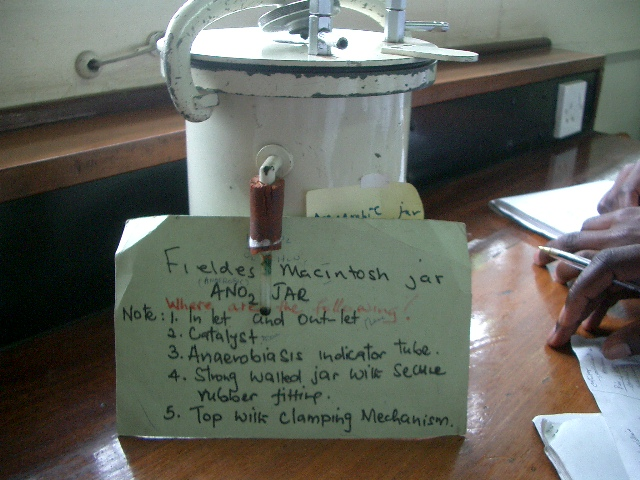 Anaerobic jar
Fieldes Macintosh jar
ANO2 JAR
Where are the following?
Note: 1. Inlet and Out-let
2. Catalyst
3. Anaerobiasis indicator tube.
4. Strong walled jar with Secure
rubber fitting.
5. Top with Clamping Mechanism.